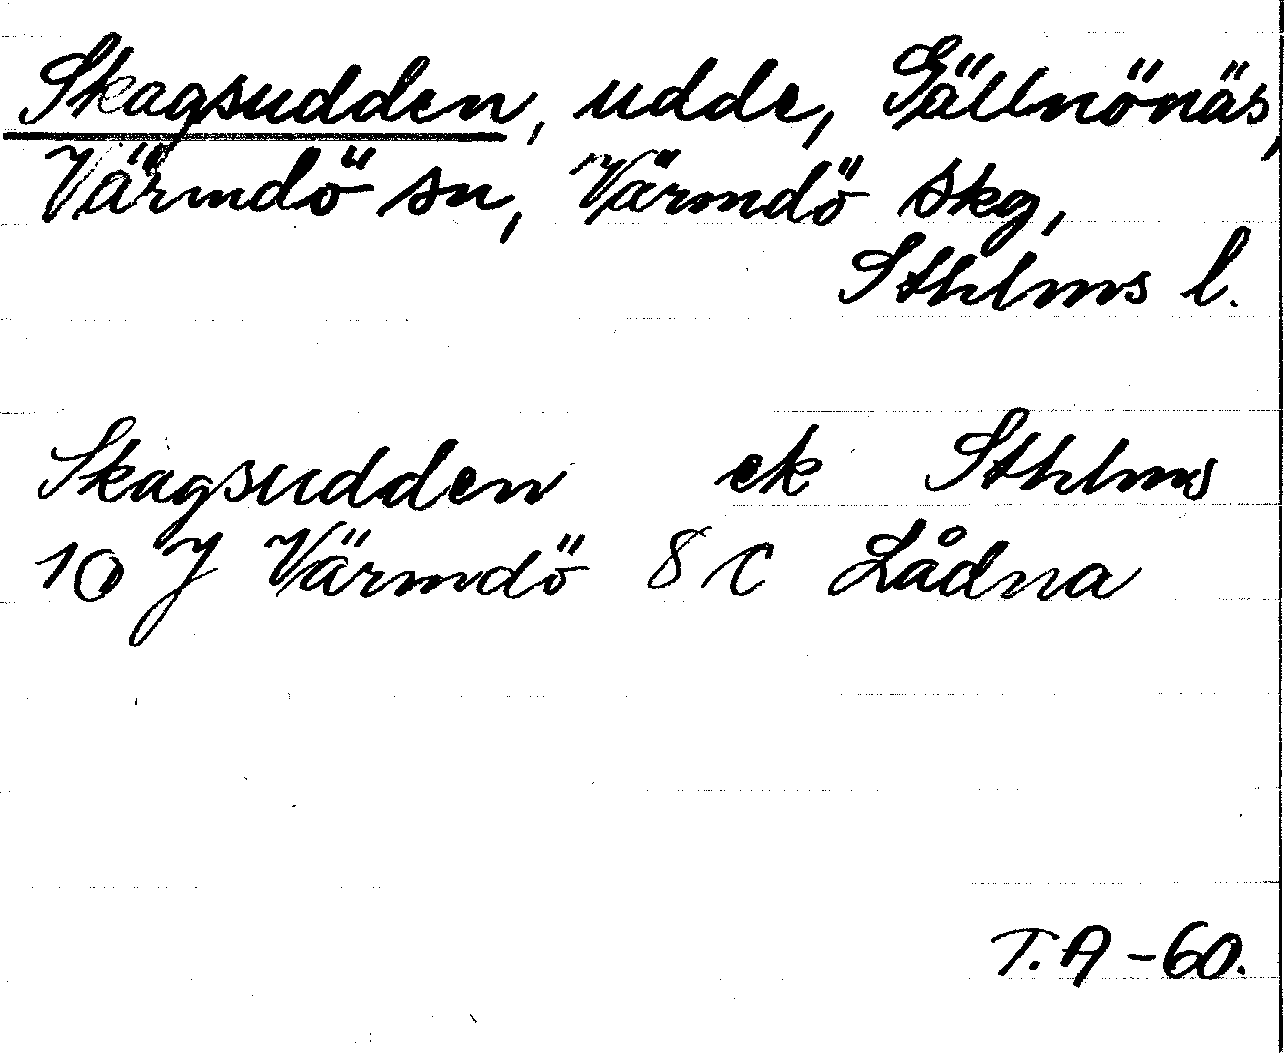 Skagsudden, udde, Gällnönäs,
Värmdö sn, Värmdö skg,
Sthlms l.
Skagsudden ek Sthlms
10 J Värmdö 8 C Lådna
T.A -60.